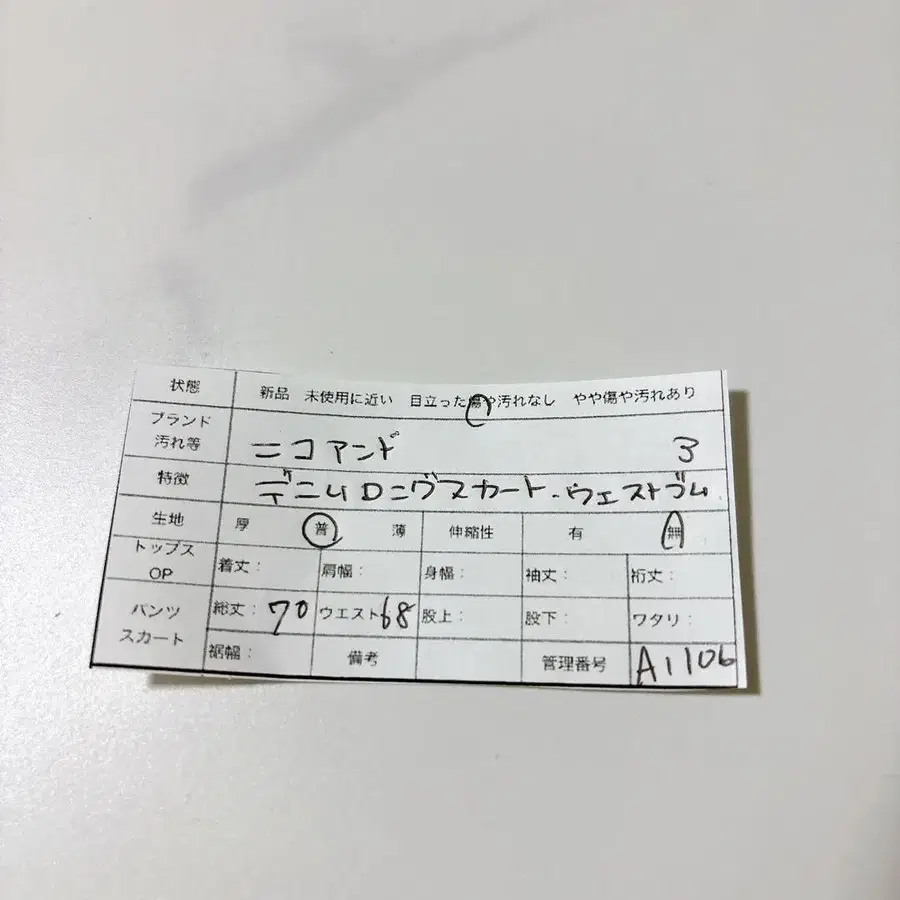 状態 新品 未使用に近い 目立った傷や汚れなし やや傷や汚れあり
ブランド
汚れ等 ニコアンド 3
特徴 デニムロングスカート・ウェストゴム
生地 厚 普 薄 伸縮性 有 無
トップス
OP 着丈: 肩幅: 身幅: 袖丈: 裄丈:
パンツ
スカート 総丈: 70 ウエスト 68 股上: 股下: ワタリ:
裾幅: 備考 管理番号 A1106